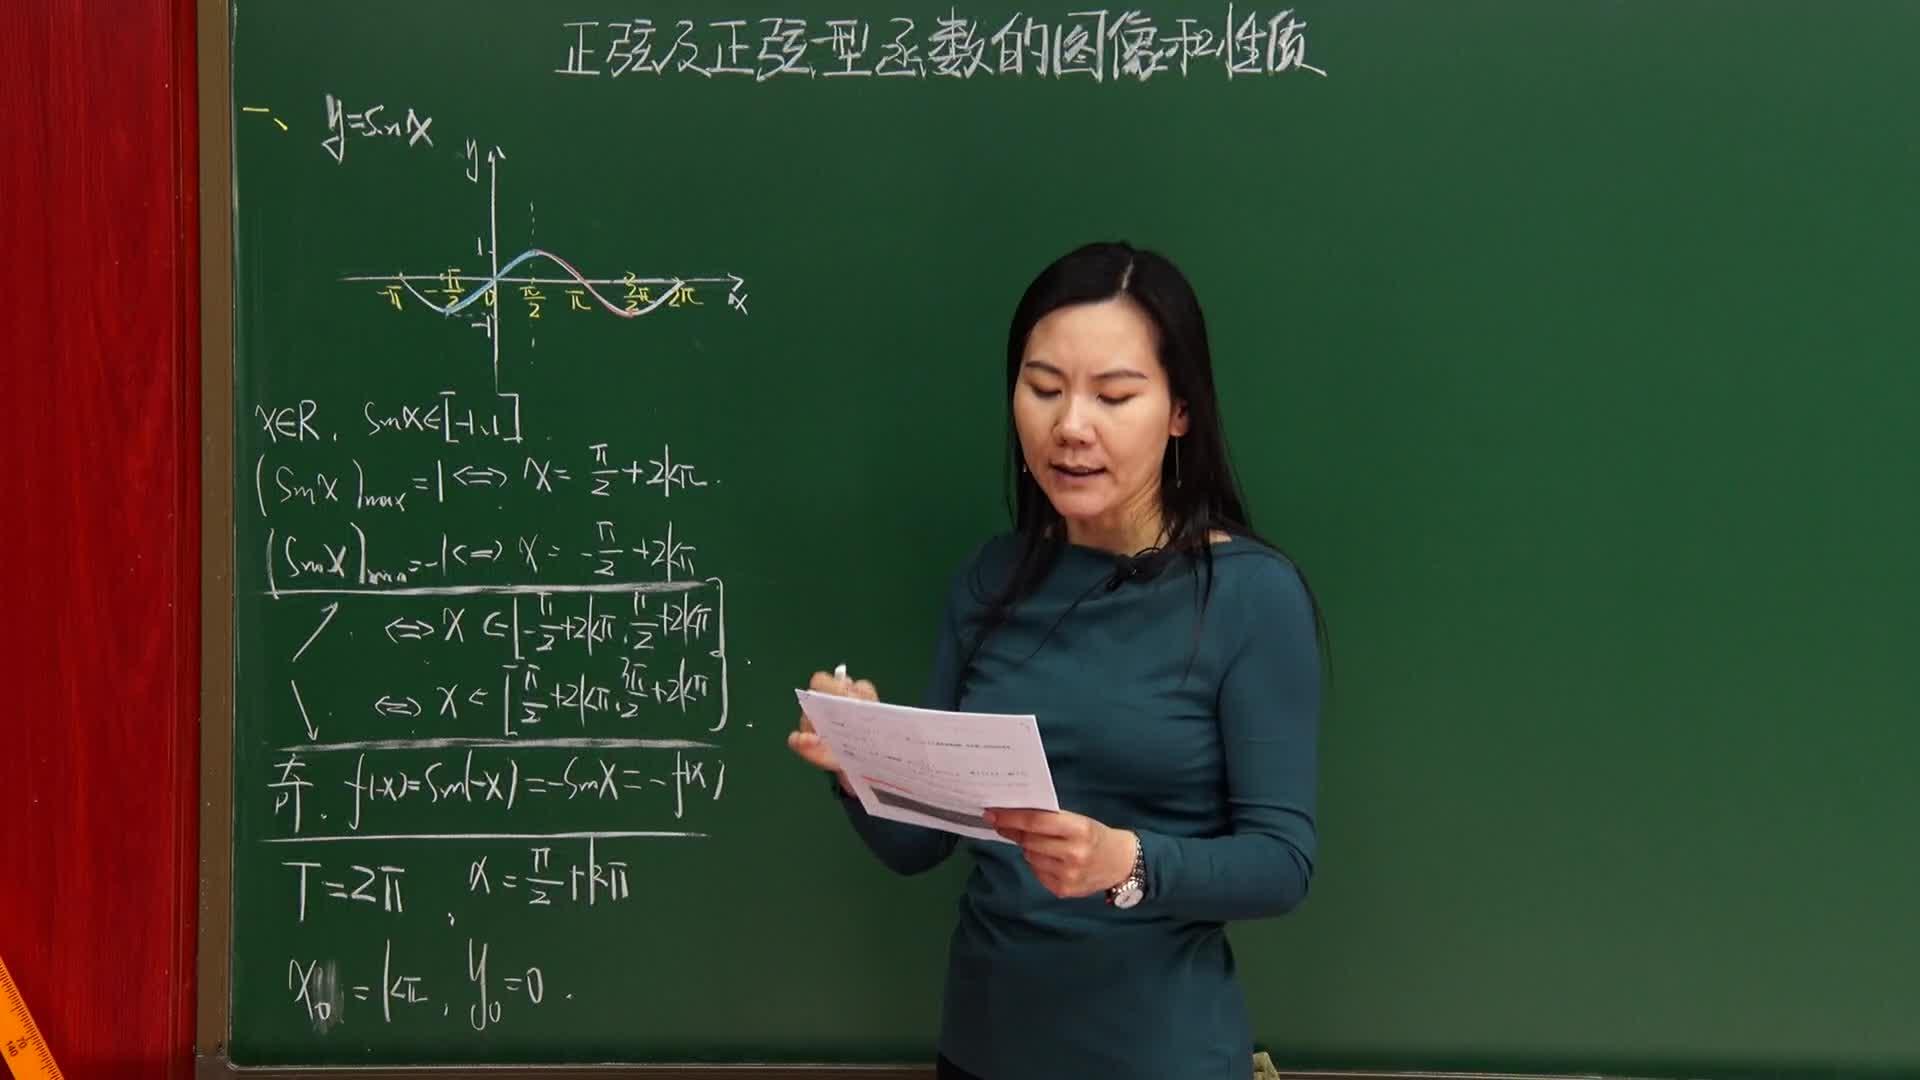 正弦及正弦型函数的图像和性质
一、 y=sinx
y
1
-π -π/2 0 π/2 π 3/2π 2π x
-1
x∈R, sinx∈[-1,1]
(sinx)max=1⇔x=π/2+2kπ.
(sinx)min=-1⇔x=-π/2+2kπ
↗. ⇔x∈[-π/2+2kπ,π/2+2kπ]
↘. ⇔x∈[π/2+2kπ,3π/2+2kπ]
奇. f(-x)=sin(-x)=-sinx=-f(x)
T=2π, x=π/2+kπ
x₀=kπ, y₀=0.
70
140